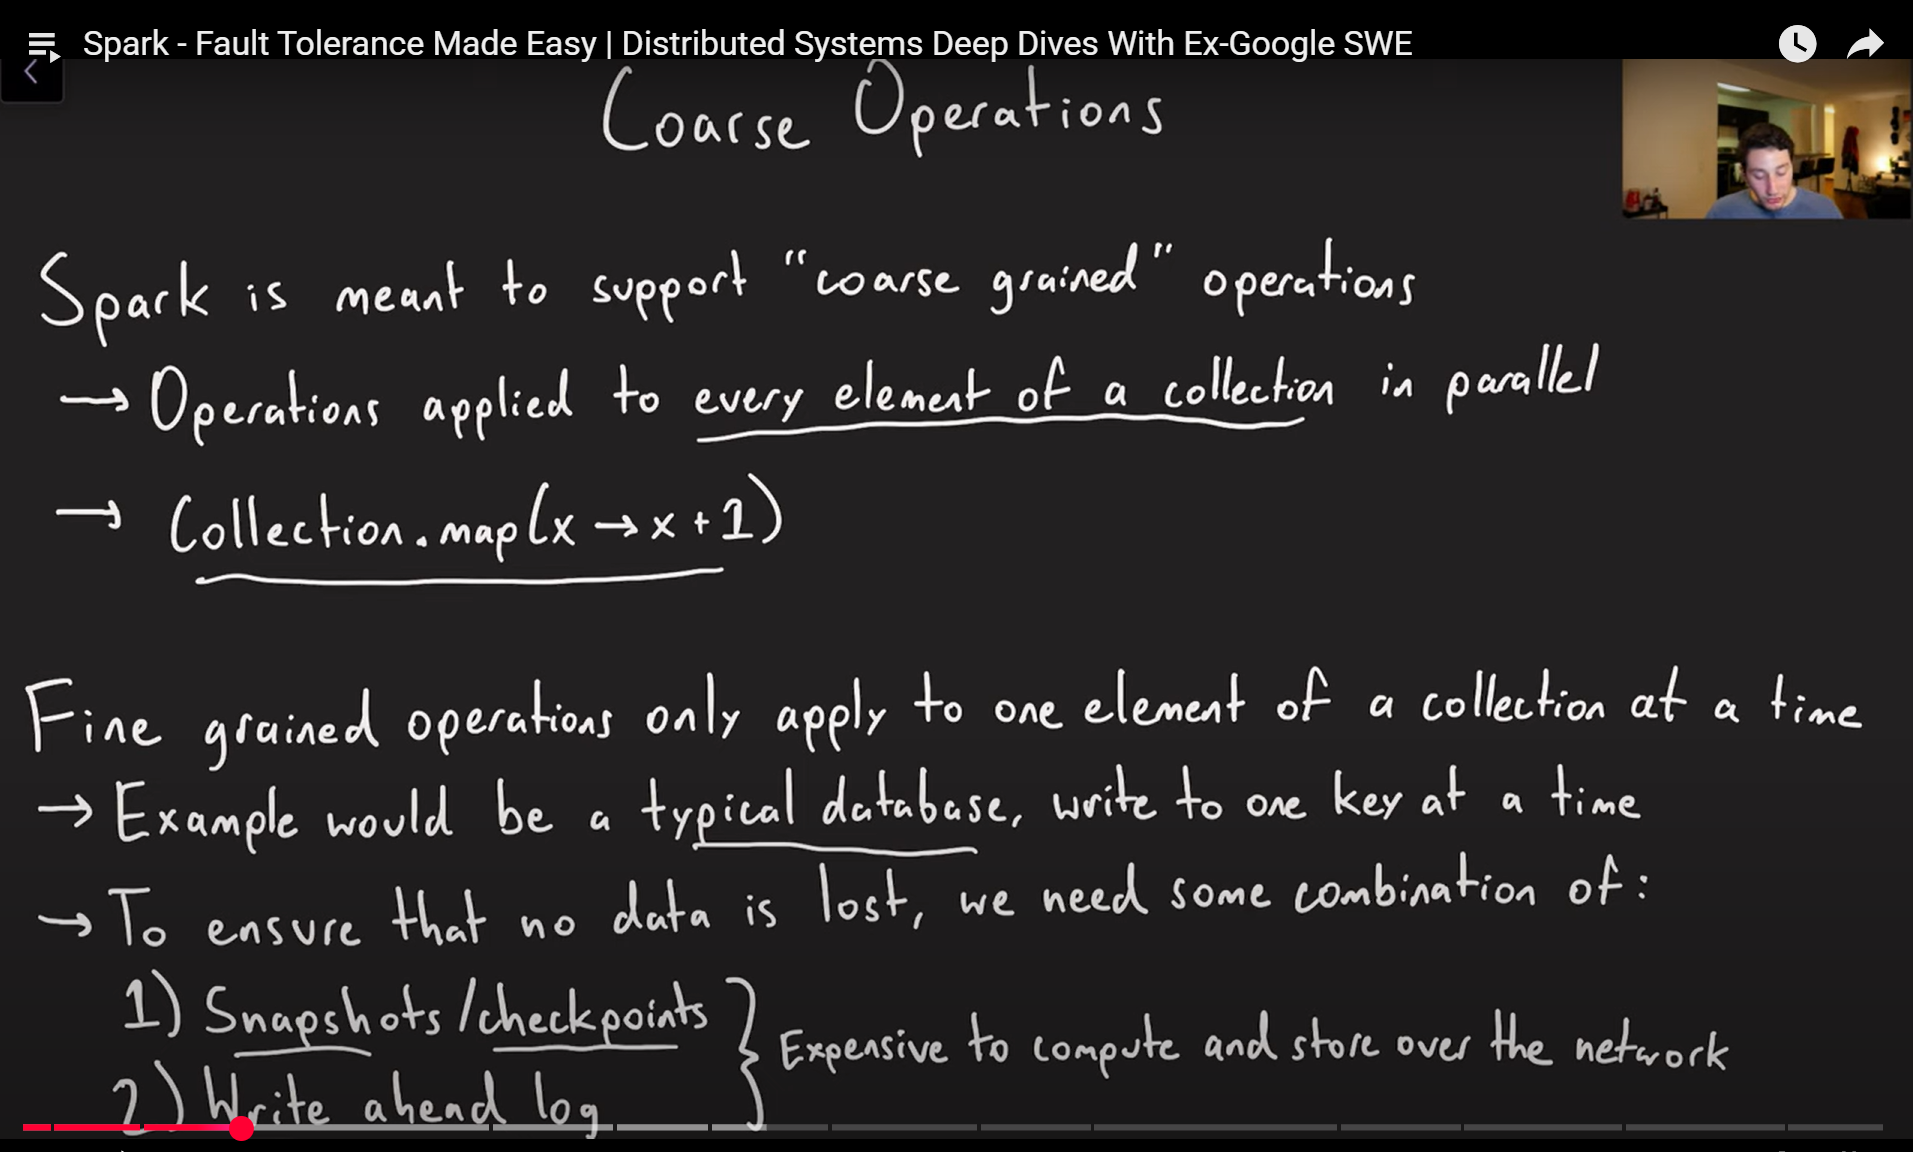 Spark - Fault Tolerance Made Easy | Distributed Systems Deep Dives With Ex-Google SWE
Coarse Operations
Spark is meant to support "coarse grained" operations
→ Operations applied to every element of a collection in parallel
→ Collection.map(x → x + 1)
Fine grained operations only apply to one element of a collection at a time
→ Example would be a typical database, write to one key at a time
→ To ensure that no data is lost, we need some combination of:
1) Snapshots/checkpoints
2) Write ahead log
} Expensive to compute and store over the network